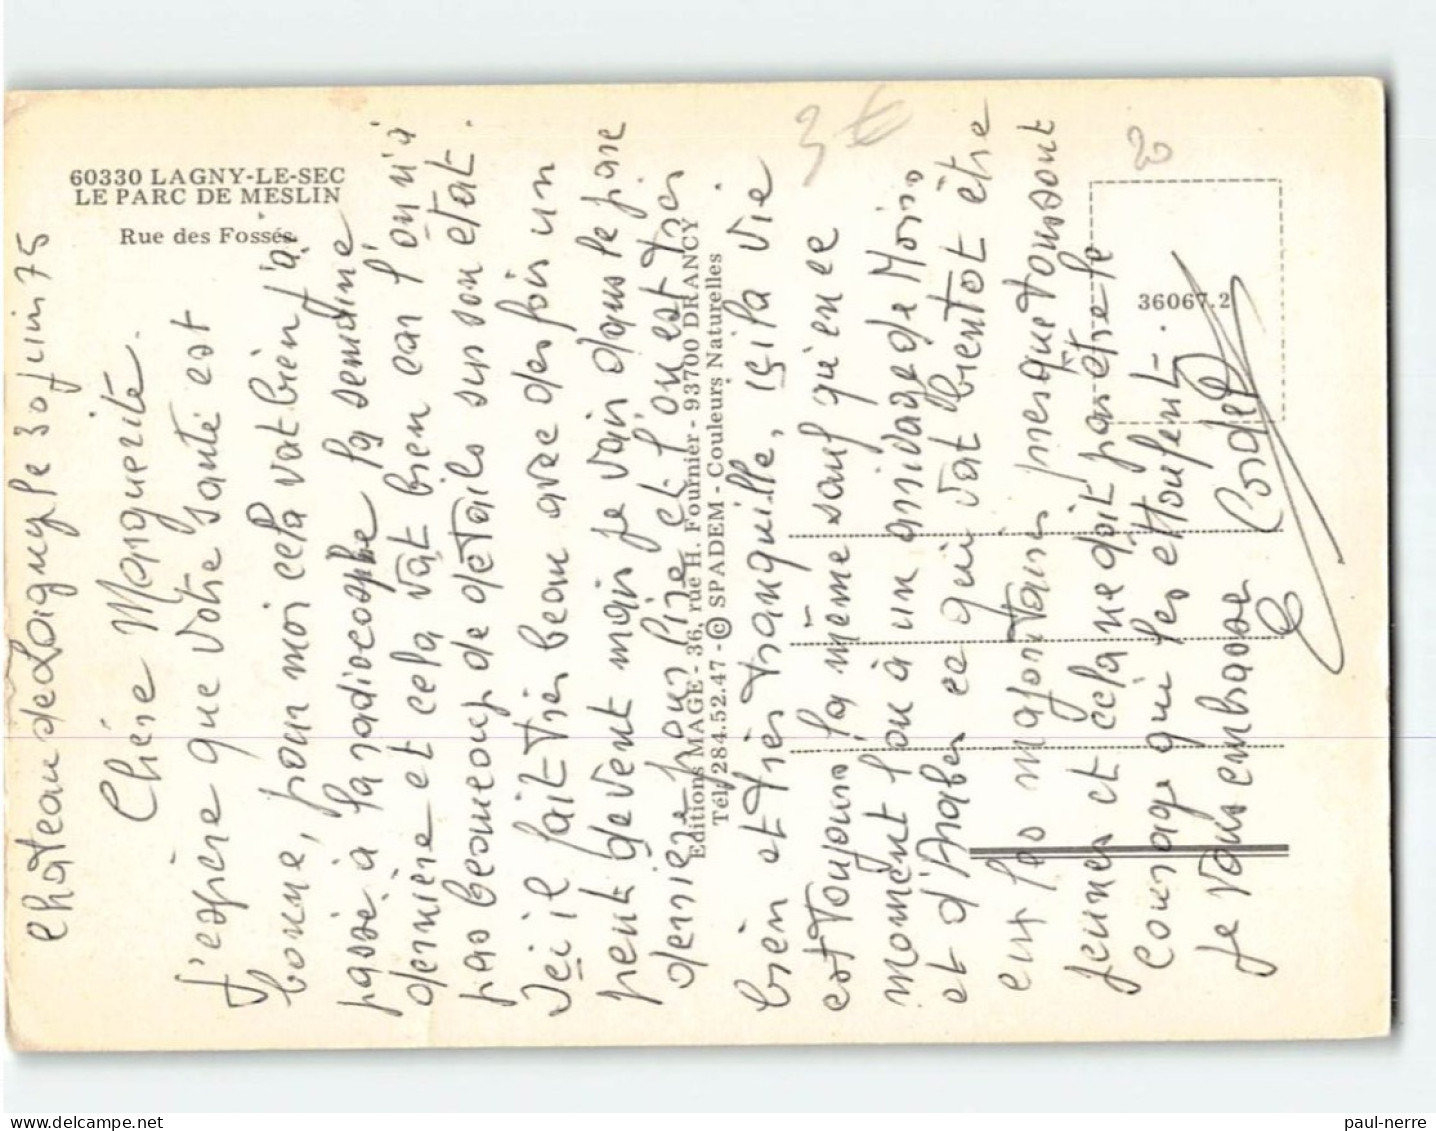 60330 LAGNY-LE-SEC
LE PARC DE MESLIN
Rue des Fossés
Editions MAGE - 36, rue H. Fournier - 93700 DRANCY
Tél. 284.52.47 - © SPADEM - Couleurs Naturelles
36067.2
3 €
20
Chateau de Laigny le 30 juin 75
Chére Marguerite.
J'espére que votre santé est
bonne, pour moi cela vat bien j'ai
passé à la radiocosphe la semaine
derniére et cela vat bien car l'on n'a
pas beaucoup de détails sur son état.
Ici il fait trés beau avec des fois un
peut de vent mais je vais dans le parc
derriére pour lire et l'on est trés
bien et trés tranquille, içi la vie
est toujours la même sauf qu'en ce
moment l'on à un arrivage de Moirs
et d'Arabes ce qui vat bientot être
eux les majoritaires presque tous sont
jeunes et cela ne doit pas être le
courage qui les étoufent.
Je vous embrasse
Cordel
paul-nerre